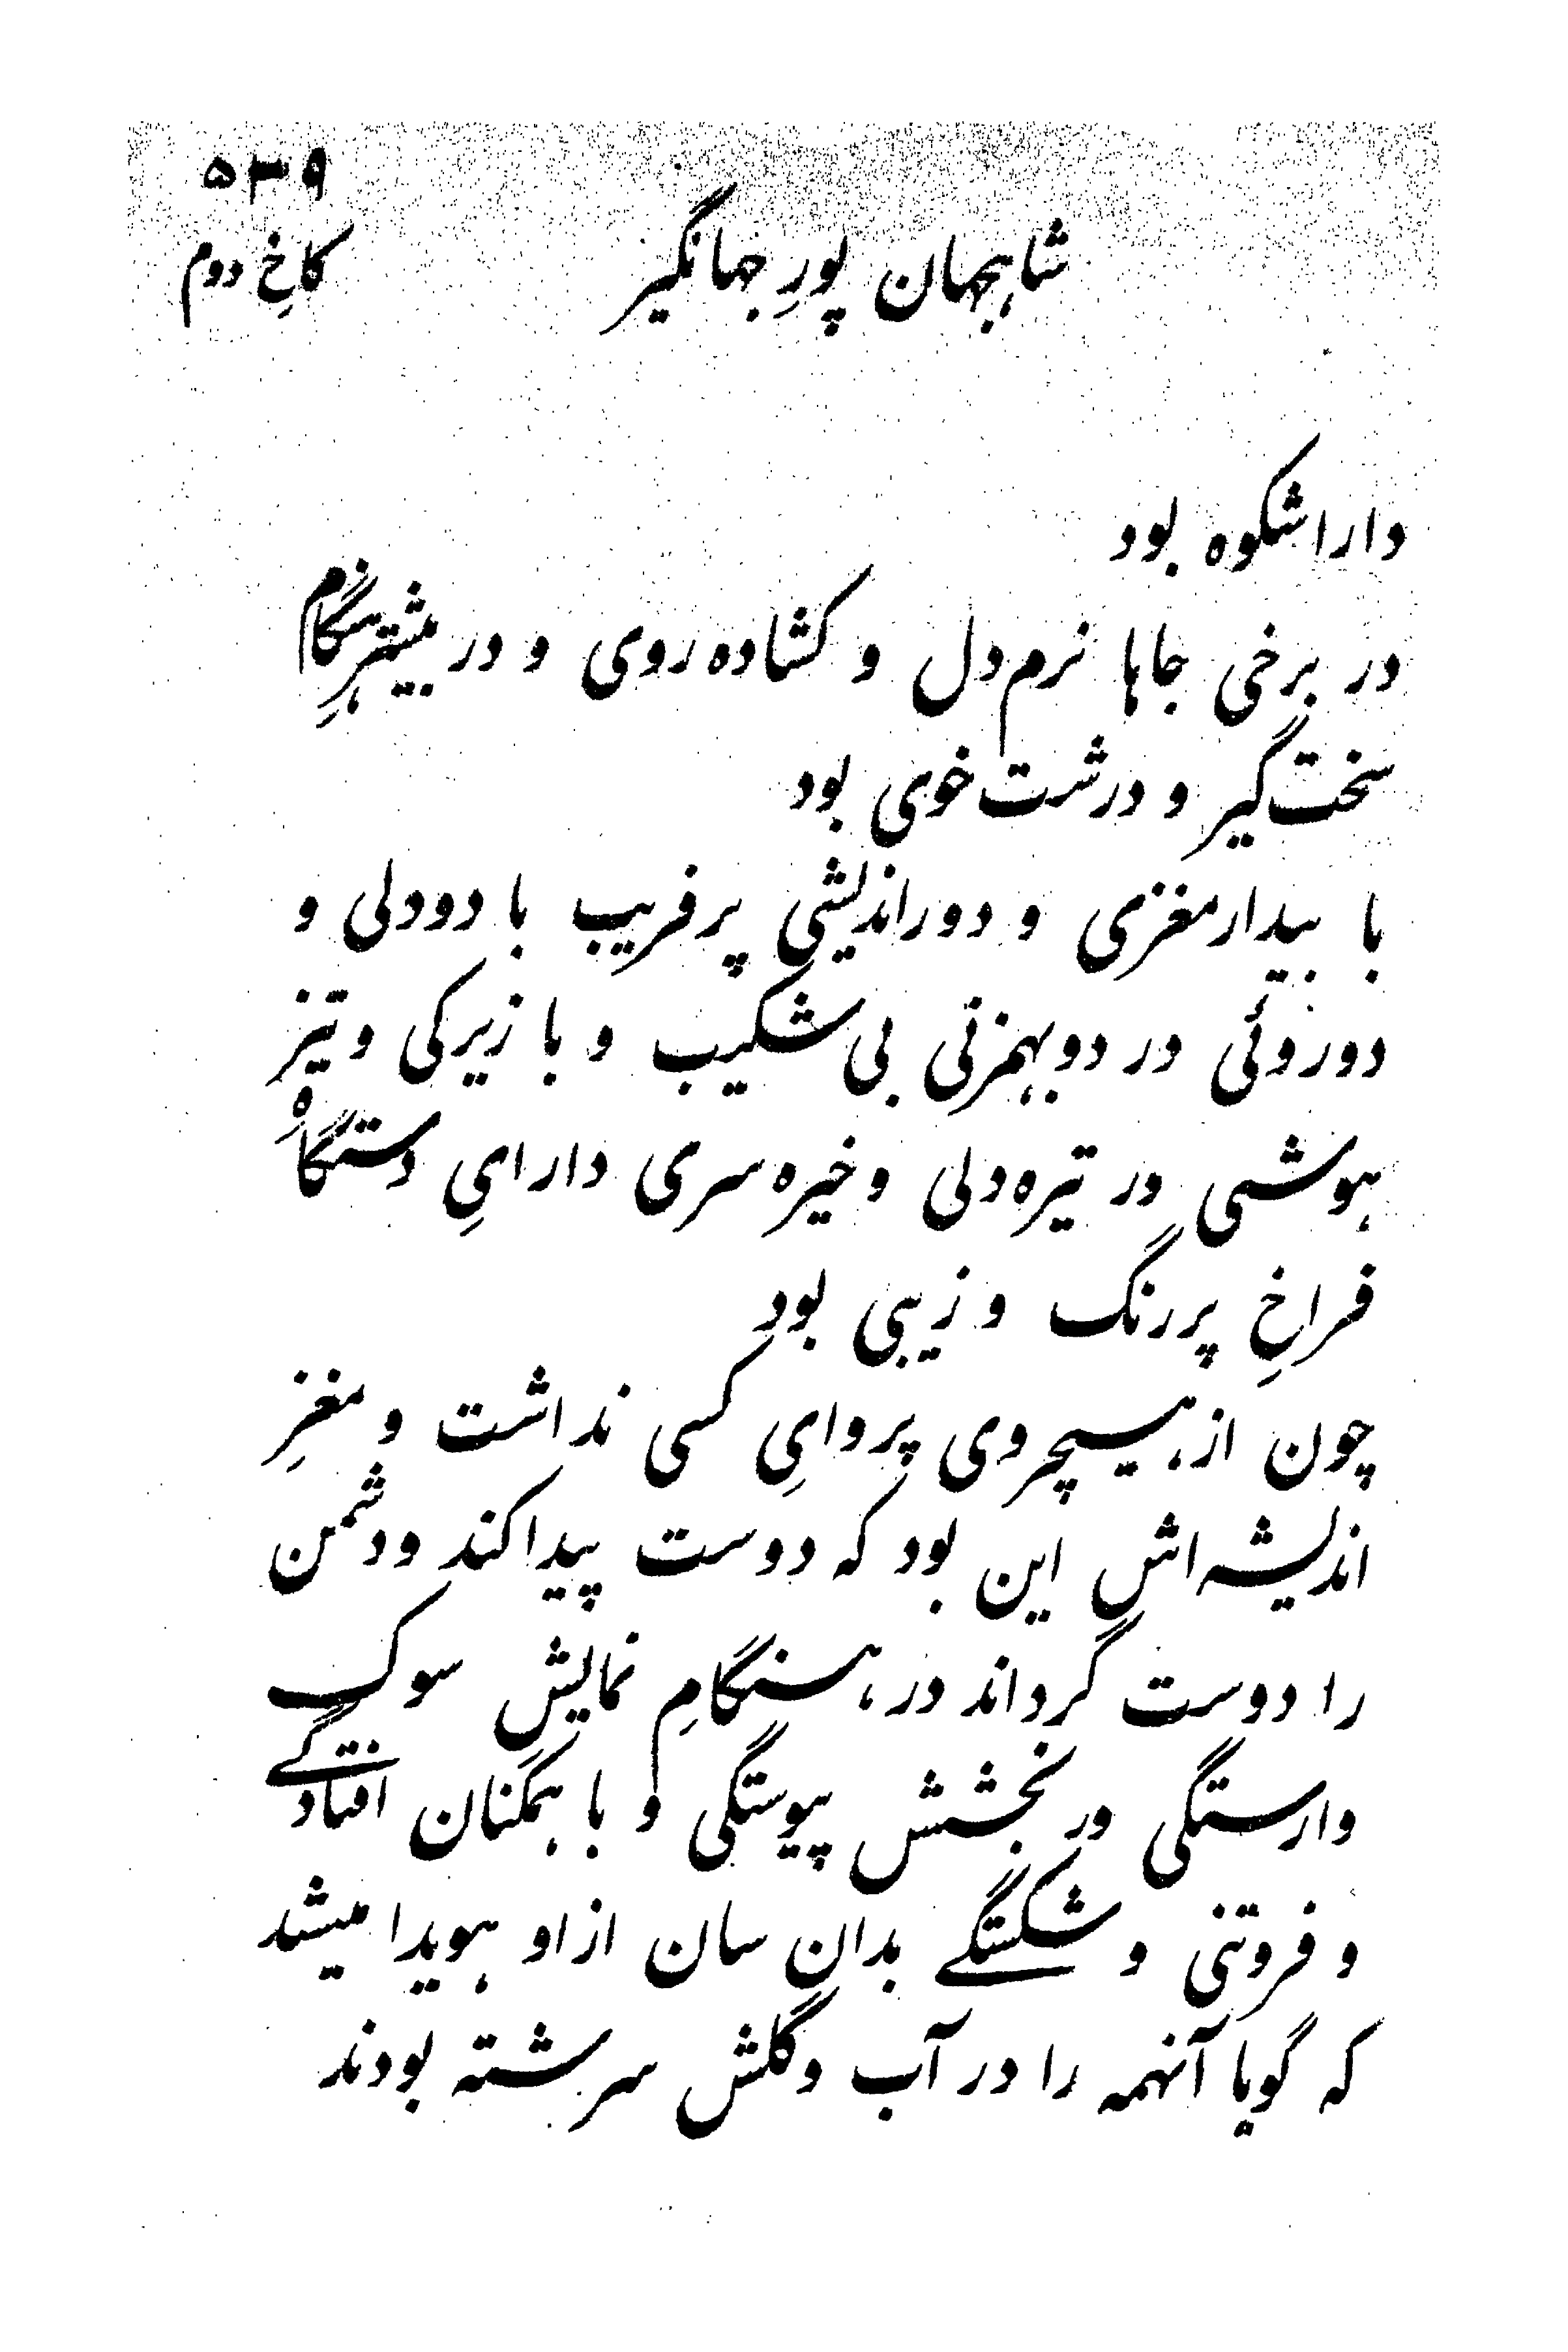 ۵۳۹
شاهجهان پورِ جهانگیر
کاخِ دوم
داراشکوه بود
در برخی جاها نرم‌دل و کشاده‌روی و در بیشترِ هنگام
سخت‌گیر و درشت‌خوی بود
با بیدارمغزی و دوراندیشی پرفریب با دودلی و
دوروئی ور دوبهمزنی بی‌شکیب و با زیرکی و تیز
هوشی ور تیره‌دلی و خیره‌سری دارایِ دستگاهِ
فراخِ پررنگ و زیبی بود
چون از هیچروی پروایِ کسی نداشت و مغزِ
اندیشه‌اش این بود که دوست پیدا کند و دشمن
را دوست گرداند در هنگامِ نمایشِ سوک
وارستگی ور بخشش پیوستگی و با همگنان افتادگے
و فروتنی و شکستگے بدان سان از او هویدا میشد
که گویا آنهمه را در آب و گلش سرشته بودند